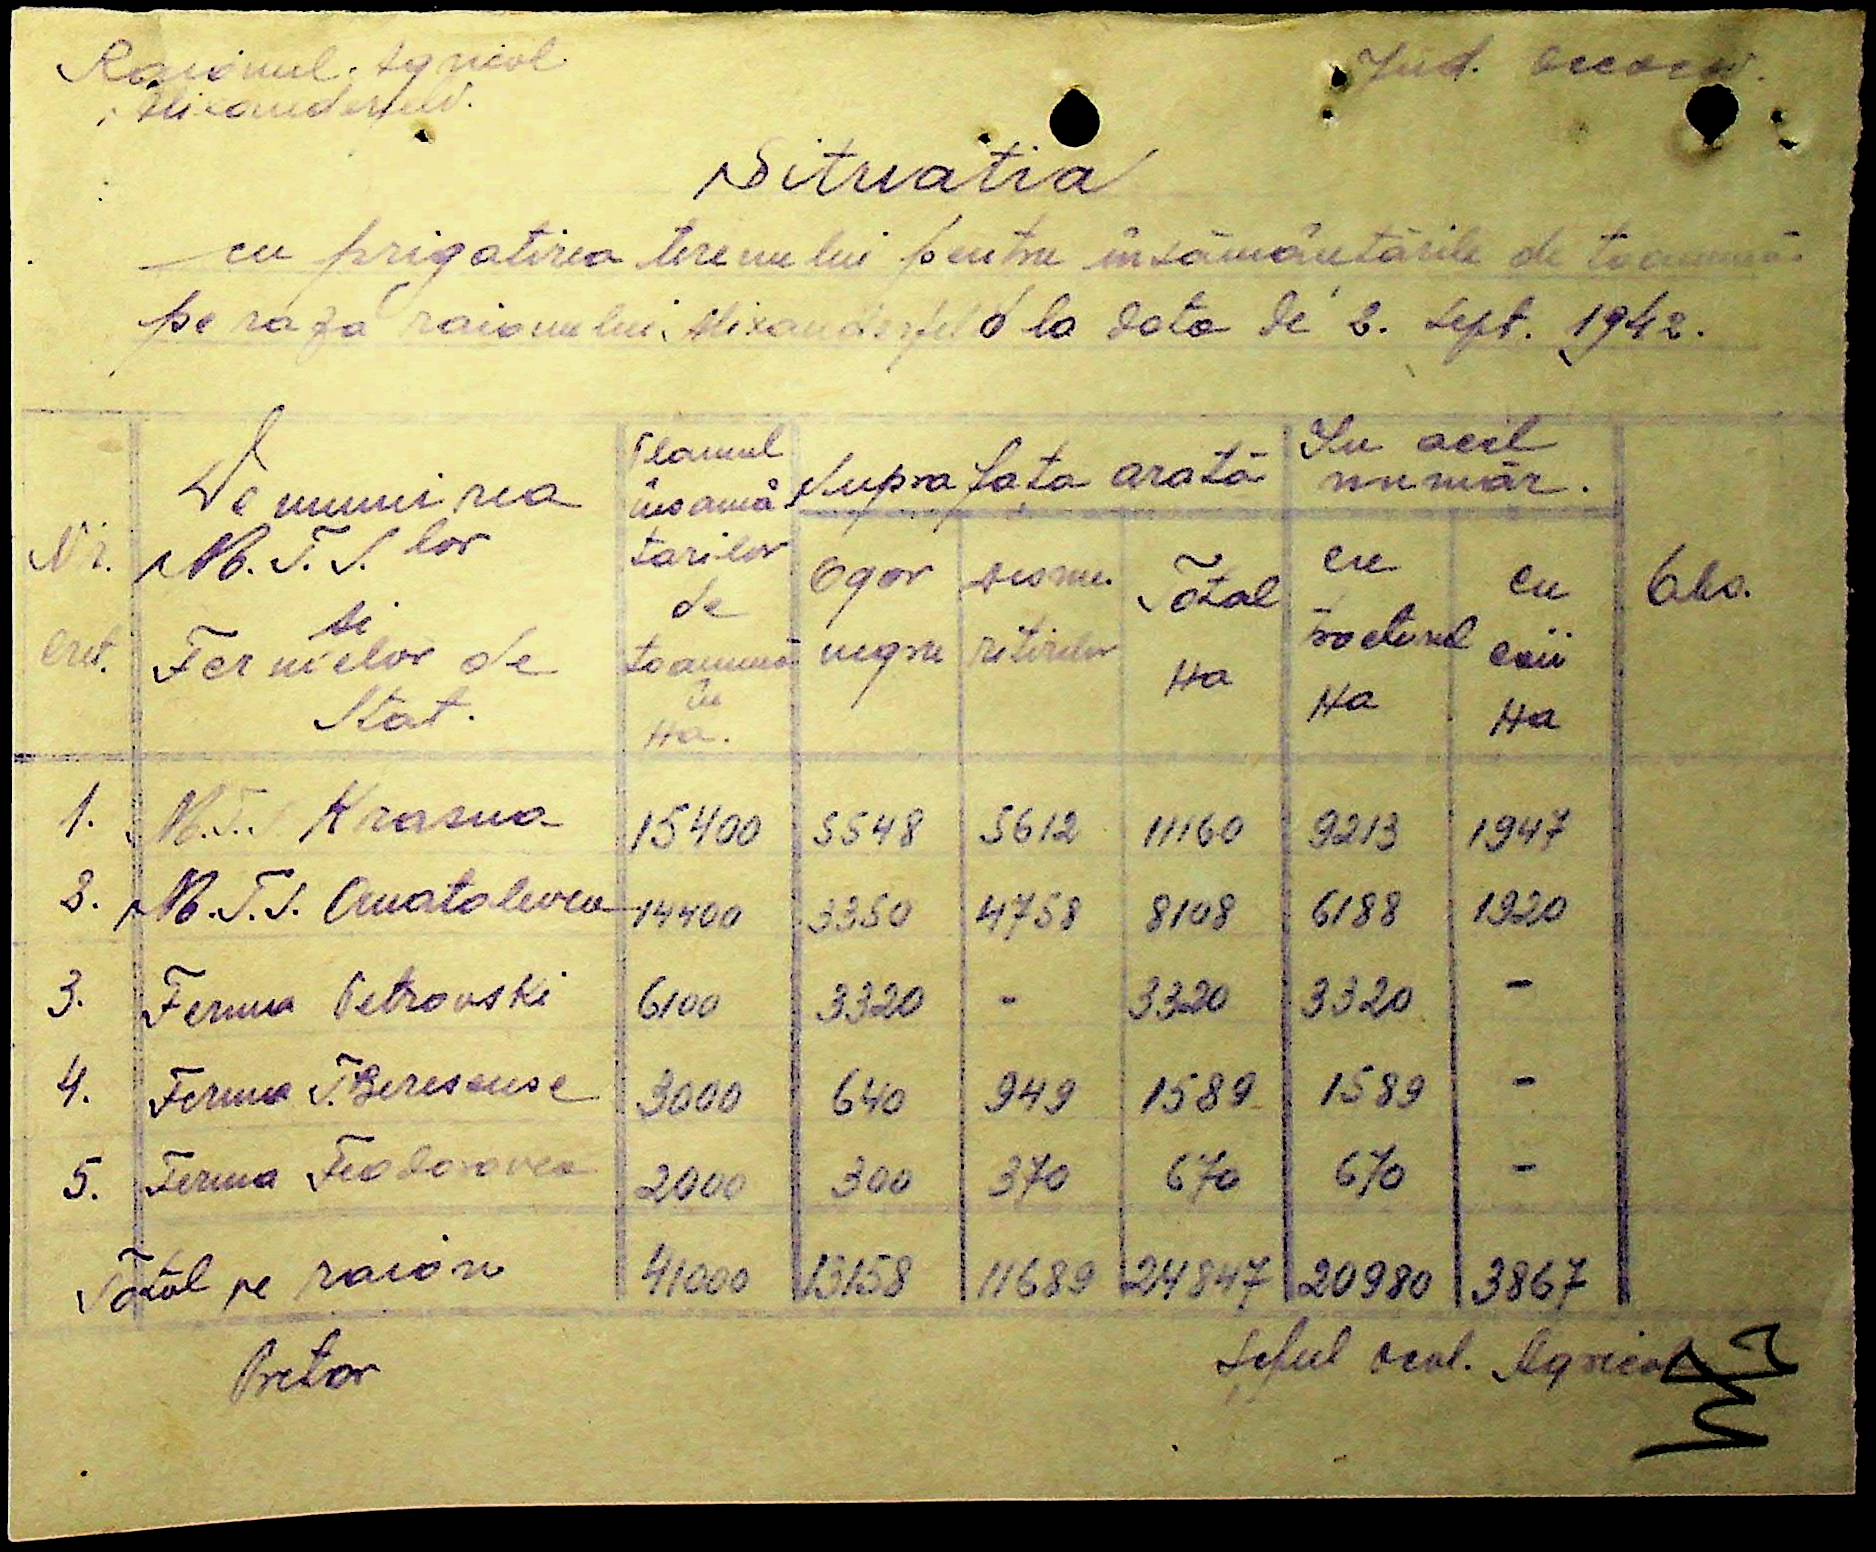 Raionul Agricol
Alixanderfeld.
Jud. Oceacov.
Situatia
cu prigatirea terenului pentru însămânțările de toamnă
pe raza raionului Alixanderfeld la data de 2. Sept. 1942.
Nr. crt.
Denumirea M.T.S. lor si Fermelor de Stat.
Planul însamâ tarilor de toamnă în Ha.
Suprafata arată
In acel număr.
Ogor negru
Desmiristiruri
Total Ha
cu tractorul Ha
cu caii Ha
Obs.
1. M.T.S. Krasna 15400 5548 5612 11160 9213 1947
2. M.T.S. Anatolievca 14400 3350 4758 8108 6188 1920
3. Ferma Petrovski 6100 3320 - 3320 3320 -
4. Ferma T. Beresanse 3000 640 949 1589 1589 -
5. Ferma Feodorovca 2000 300 370 670 670 -
Total pe raion 41000 13158 11689 24847 20980 3867
Pretor
Șeful ocol. Agricol